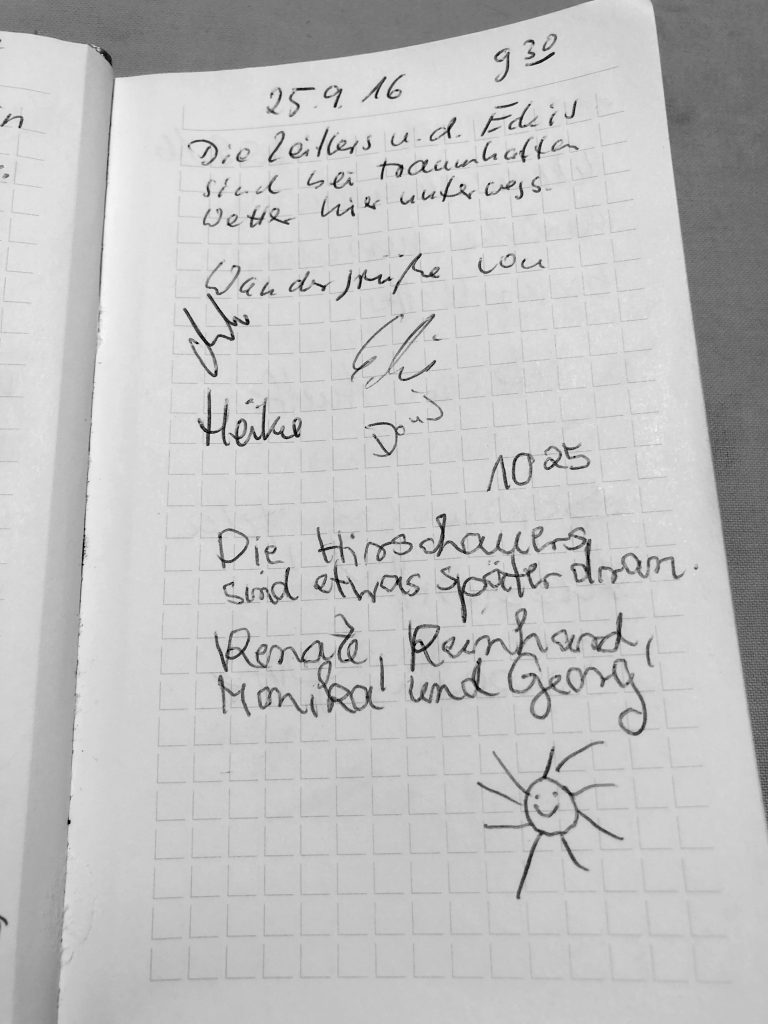 25.9.16 9 30
Die Zeitlers u. d. Edeis
sind bei traumhaften
Wetter hier unterwegs.
Wandergrüße von
Heike
10 25
Die Hirschauers
sind etwas später dran.
Renate, Reinhard,
Monika und Georg